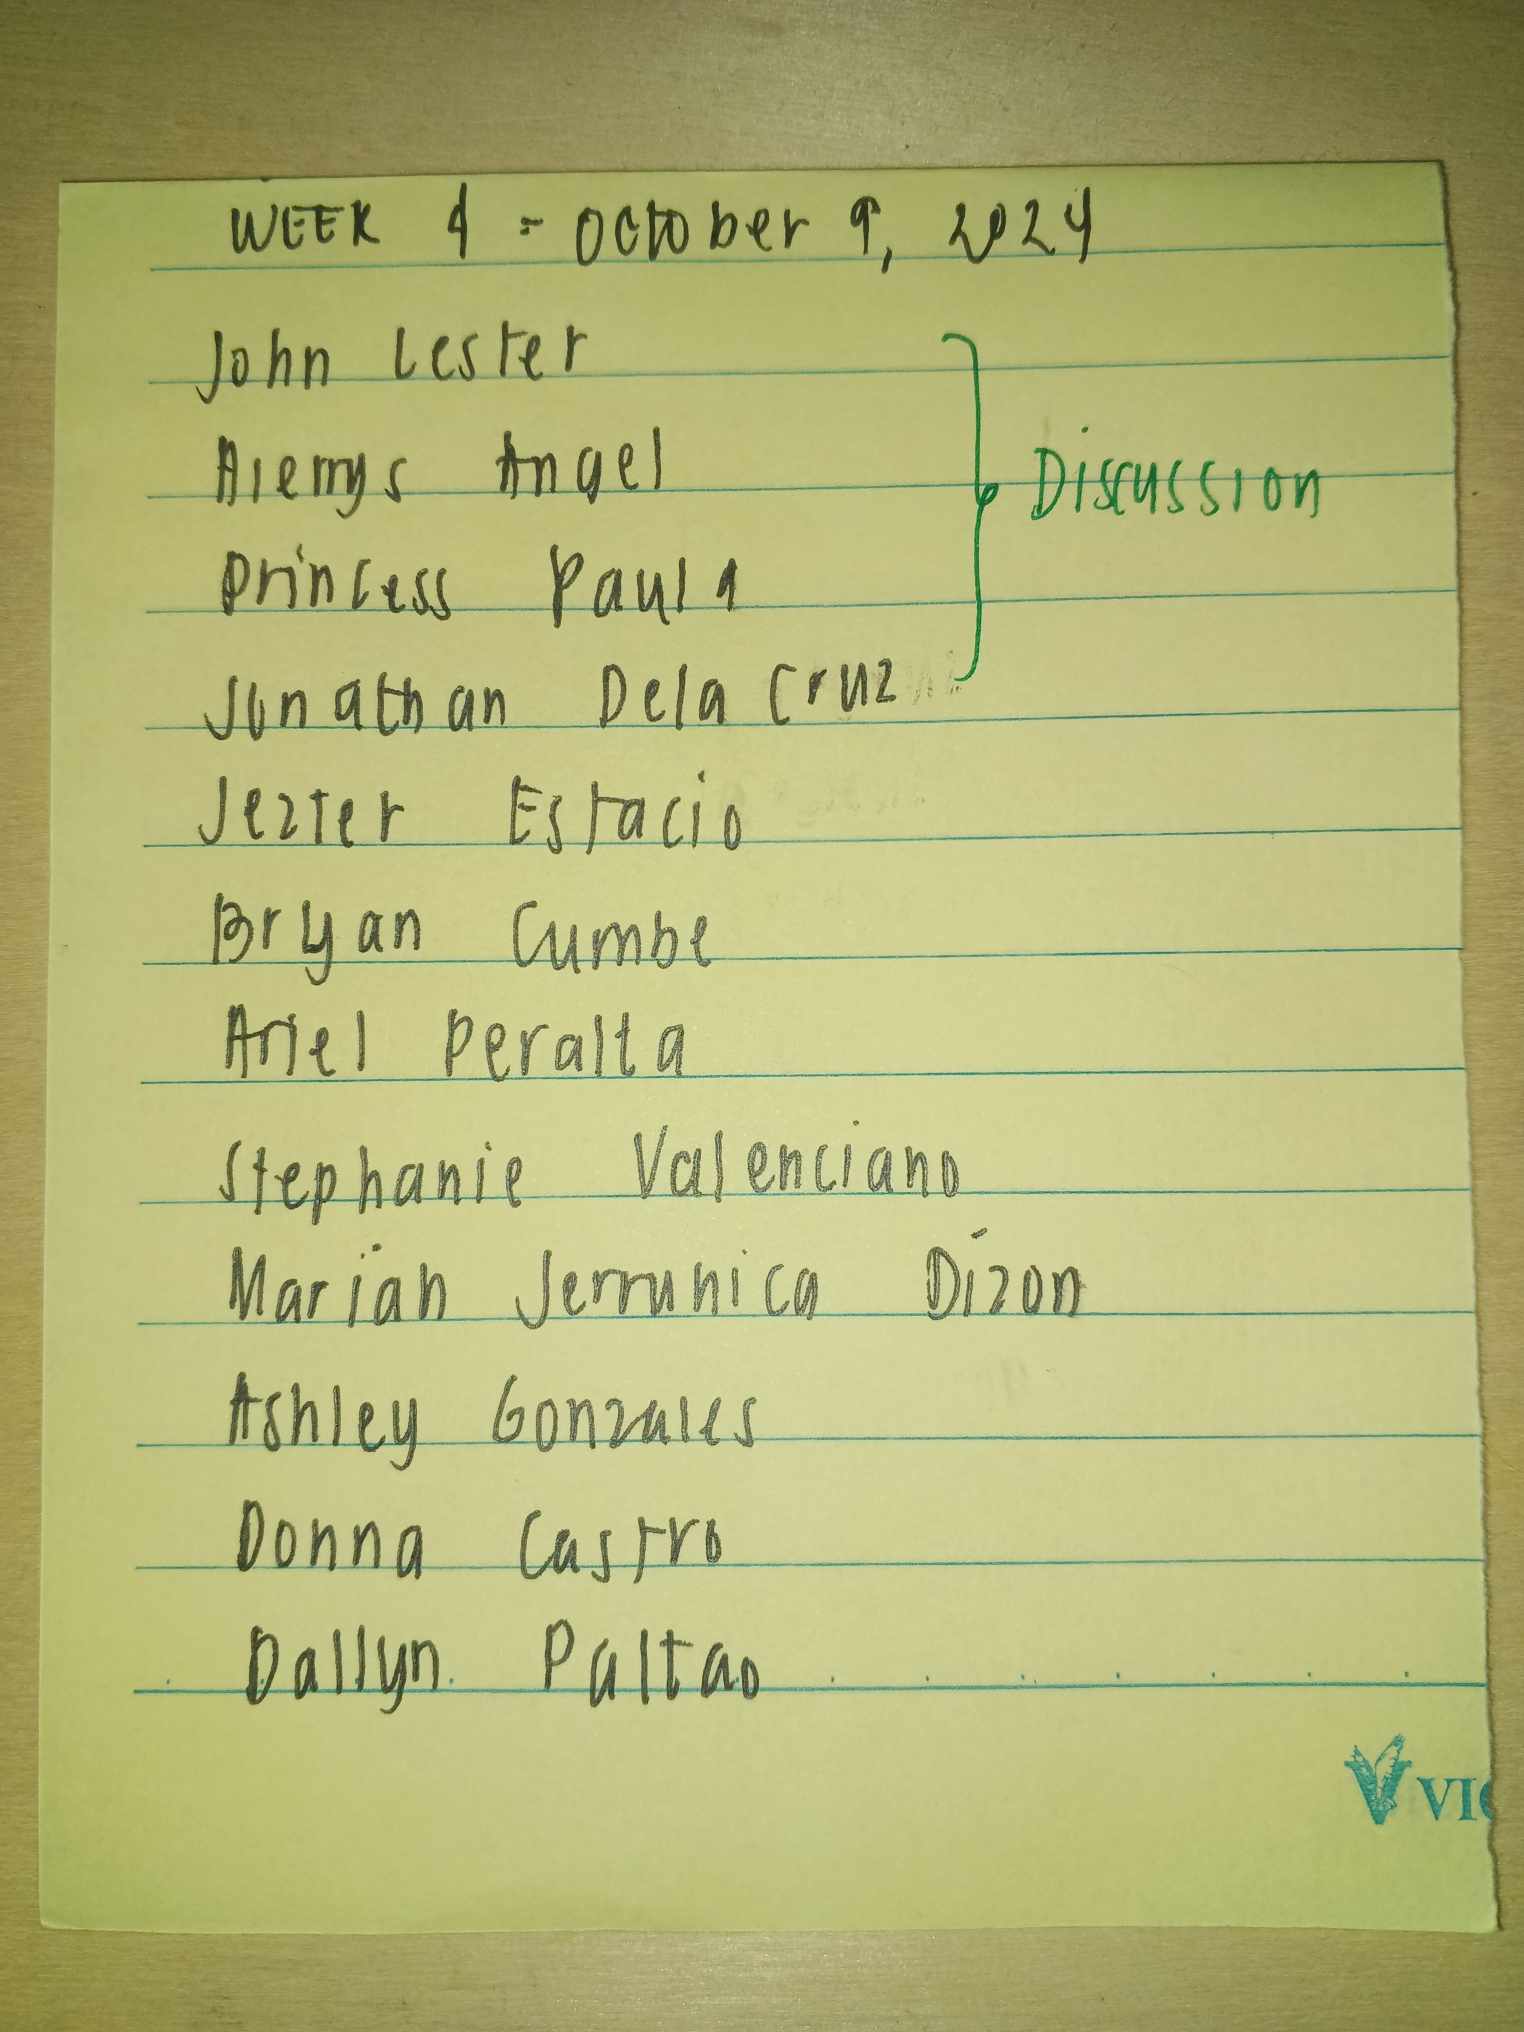 WEEK 4 - October 9, 2024
John Lester
Alemys Angel
Discussion
Princess Paula
Jonathan Dela Cruz
Jezter Estacio
Bryan Cumbe
Ariel Peralta
Stephanie Valenciano
Marian Jerrunica Dizon
Ashley Gonzales
Donna Castro
Dallyn Paltao